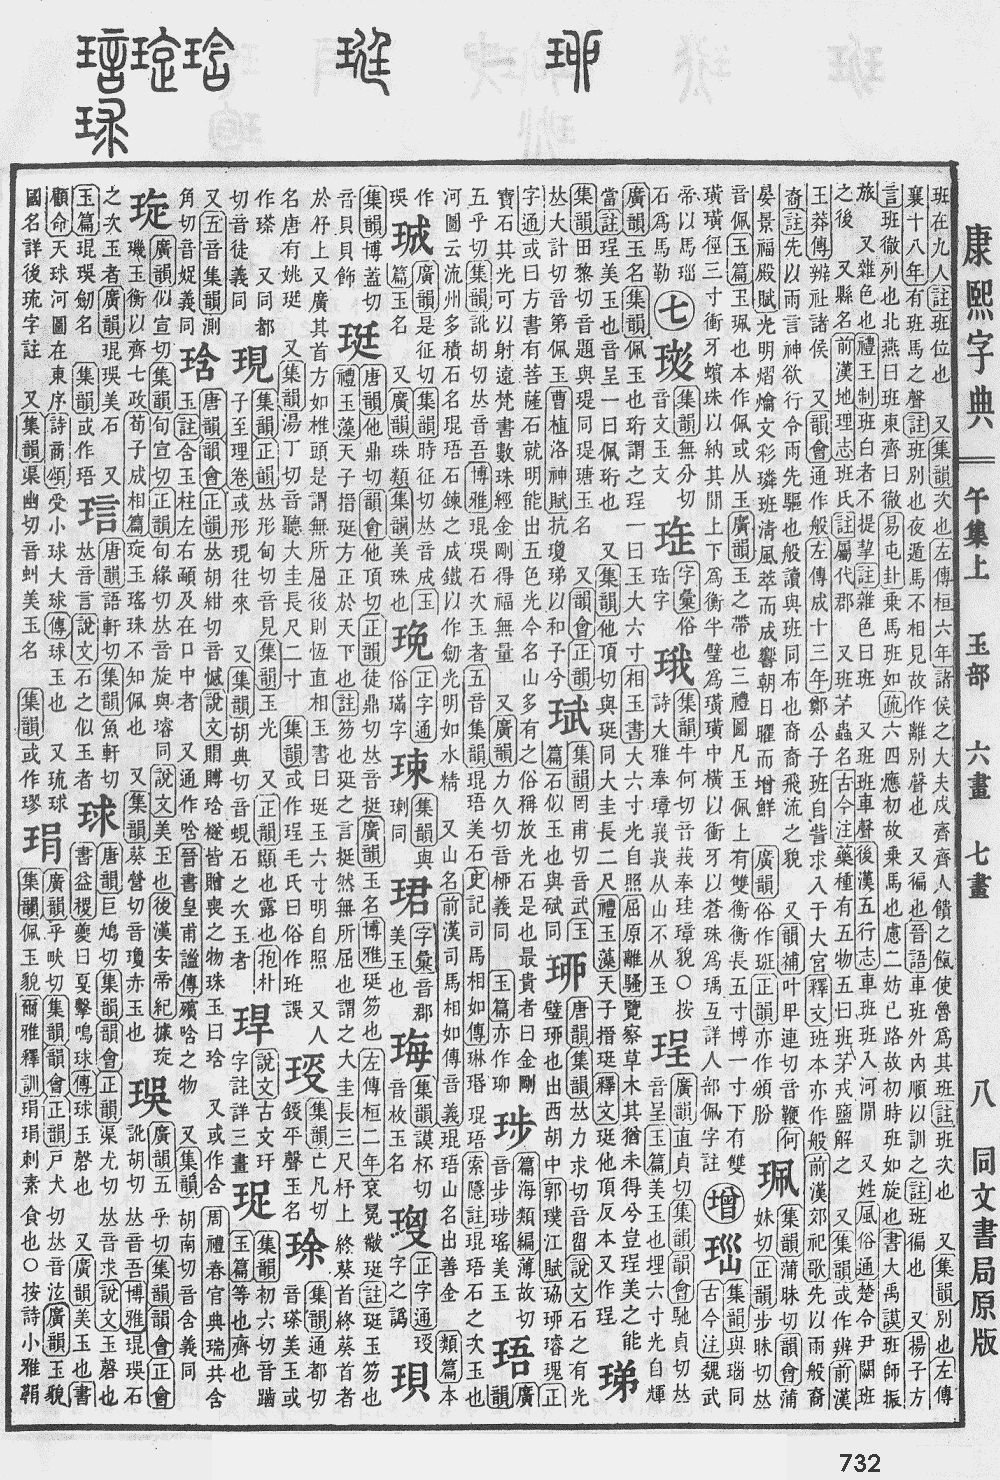 康熙字典 午集上 玉部 六畫 七畫 八 同文書局原版
班在九人註班位也 又集韻次也左傳桓六年諸侯之大夫戍齊齊人饋之餼使魯爲其班註班次也 又集韻別也左傳
襄十八年有班馬之聲註班別也夜遁馬不相見故作離別聲也 又徧也晉語車班外內順以訓之註班徧也 又揚子方
言班徹列也北燕曰班東齊曰徹易屯卦乘馬班如疏六四應初故乘馬也慮二妨已路故初時班如旋也書大禹謨班師振
旅 又雜色也禮王制班白者不提挈註雜色曰班 又班班車聲後漢五行志車班班入河閒 又姓風俗通楚令尹鬭班
之後 又縣名前漢地理志班氏註屬代郡 又班茅蟲名古今注藥種有五物五曰班茅戎鹽解之 又集韻或作辨前漢
王莽傳辨社諸侯 又韻會通作般左傳成十三年鄭公子班自訾求入于大宮釋文班本亦作般前漢郊祀歌先以雨般裔
裔註先以雨言神欲行令雨先驅也般讀與班同布也裔裔飛流之貌 又韻補叶卑連切音鞭何
晏景福殿賦光明熠爚文彩璘班清風萃而成響朝日曜而增鮮 廣韻俗作班正韻亦作頒朌 珮 集韻蒲昧切韻會蒲妹切正韻步昧切𠀤
音佩玉篇玉珮也本作佩或从玉廣韻玉之帶也三禮圖凡玉佩上有雙衡衡長五寸博一寸下有雙
璜璜徑三寸衝牙蠙珠以納其閒上下爲衡半璧爲璜璜中橫以衝牙以蒼珠爲瑀互詳人部佩字註 增 集韻與瑙同古今注魏武
帝以馬瑙石爲馬勒 七 玟 集韻無分切音文玉文 字彙俗珤字 珴 集韻牛何切音莪奉珪璋貌○按詩大雅奉璋峩峩从山不从玉 珵 廣韻直貞切集韻韻會馳貞切𠀤音呈玉篇美玉也埋六寸光自輝
廣韻玉名集韻佩玉也珩謂之珵一曰玉大六寸相玉書大六寸光自照屈原離騷覽察草木其猶未得兮豈珵美之能
當註珵美玉也音呈一曰佩珩也 又集韻他頂切與珽同大圭長二尺禮玉藻天子搢珽釋文珽他頂反本又作珵 珶
集韻田黎切音題與瑅同瑅瑭玉名 又韻會正韻𠀤大計切音第佩玉曹植洛神賦抗瓊珶以和子兮 珷 集韻罔甫切音武玉篇石似玉也與碔同 珋 唐韻集韻𠀤力求切音留說文石之有光
璧珋也出西胡中郭璞江賦珕珋璿瑰正字通或曰方書有菩薩石就明能出五色光今名山多有之俗稱放光石是也最貴者曰金剛
寶石其光可以射遠梵書數珠經金剛得福無量 又廣韻力久切音柳義同 玉篇亦作珋 珘 篇海類編薄故切音步珘瑤美玉 珸 廣韻
五乎切集韻訛胡切𠀤音吾博雅琨珸石次玉者五音集韻琨珸美石史記司馬相如傳琳瑉琨珸索隱註琨珸石之次玉也
河圖云流州多積石名琨珸石鍊之成鐵以作劒光明如水精 又山名前漢司馬相如傳音義琨珸山名出善金 類篇本
作珸 珹 廣韻是征切集韻時征切𠀤音成玉篇玉名 又廣韻珠類集韻美珠也 珫 正字通俗璃字 琜 集韻與琍同 珺 字彙音郡美玉也 珻 集韻謨杯切音枚玉名 正字通琝字之譌 珼
集韻博蓋切音貝貝飾 珽 唐韻他鼎切韻會他頂切正韻徒鼎切𠀤音挺廣韻玉名博雅珽笏也左傳桓二年袞冕黻珽註珽玉笏也
禮玉藻天子搢珽方正於天下也註笏也珽之言挺然無所屈也謂之大圭長三尺杼上終葵首終葵首者
於杼上又廣其首方如椎頭是謂無所屈後則恆直相玉書曰珽玉六寸明自照 又人名唐有姚珽 又集韻湯丁切音聽大圭長尺二寸 集韻或作珵毛氏曰俗作班誤 琝 集韻亡凡切鋄平聲玉名 集韻通都切音瑹美玉或作瑹
現 集韻正韻𠀤形甸切音見集韻玉光 又正韻顯也露也抱朴子至理卷或形現往來 又集韻胡典切音蜆石之次玉者 琾 說文古文玕字註詳三畫 珿 集韻初六切音齪玉篇等也齊也
又五音集韻測角切音娖義同 琀 唐韻韻會正韻𠀤胡紺切音憾說文閒賻琀襚皆贈喪之物珠玉曰琀 又或作含周禮春官典瑞共含
玉註含玉柱左右顄及在口中者 又通作唅晉書皇甫謐傳殯唅之物 又集韻胡南切音含義同
琁 廣韻似宣切集韻句宣切正韻旬緣切𠀤音旋與璿同說文美玉也後漢安帝紀據琁璣玉衡以齊七政荀子成相篇琁玉瑤珠不知佩也 又集韻葵營切音瓊赤玉也 珸 廣韻五乎切集韻韻會正韻訛胡切𠀤音吾博雅琨珸石
之次玉者廣韻琨珸美石 又玉篇琨珸劒名 集韻或作珸 琂 唐韻語軒切集韻魚軒切𠀤音言說文石之似玉者 球 唐韻巨鳩切集韻韻會正韻渠尤切𠀤音求說文玉磬也書益稷夔曰戛擊鳴球傳球玉磬也 又廣韻美玉也書
顧命天球河圖在東序詩商頌受小球大球傳球玉也 又琉球國名詳後琉字註 又集韻渠幽切音虯美玉名 集韻或作璆 琄 廣韻乎畎切集韻韻會正韻戶犬切𠀤音泫廣韻玉貌
集韻佩玉貌爾雅釋訓琄琄刺素食也○按詩小雅鞙
732